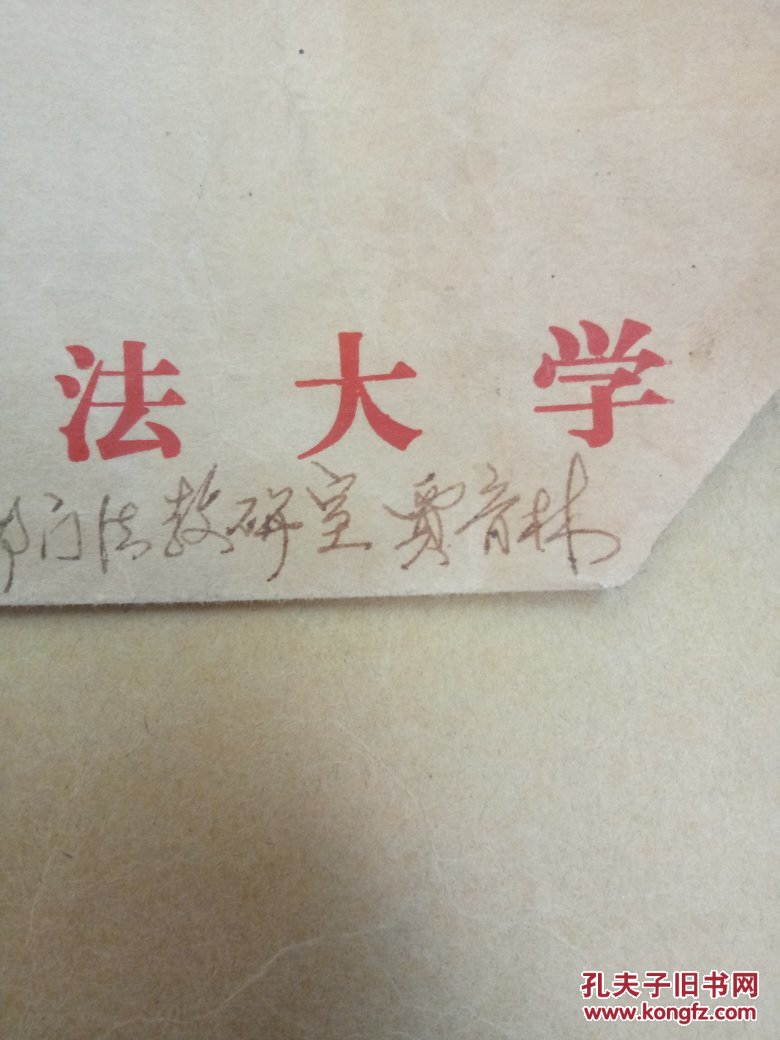 法大学
门法教研室 贾育林
孔夫子旧书网
www.kongfz.com